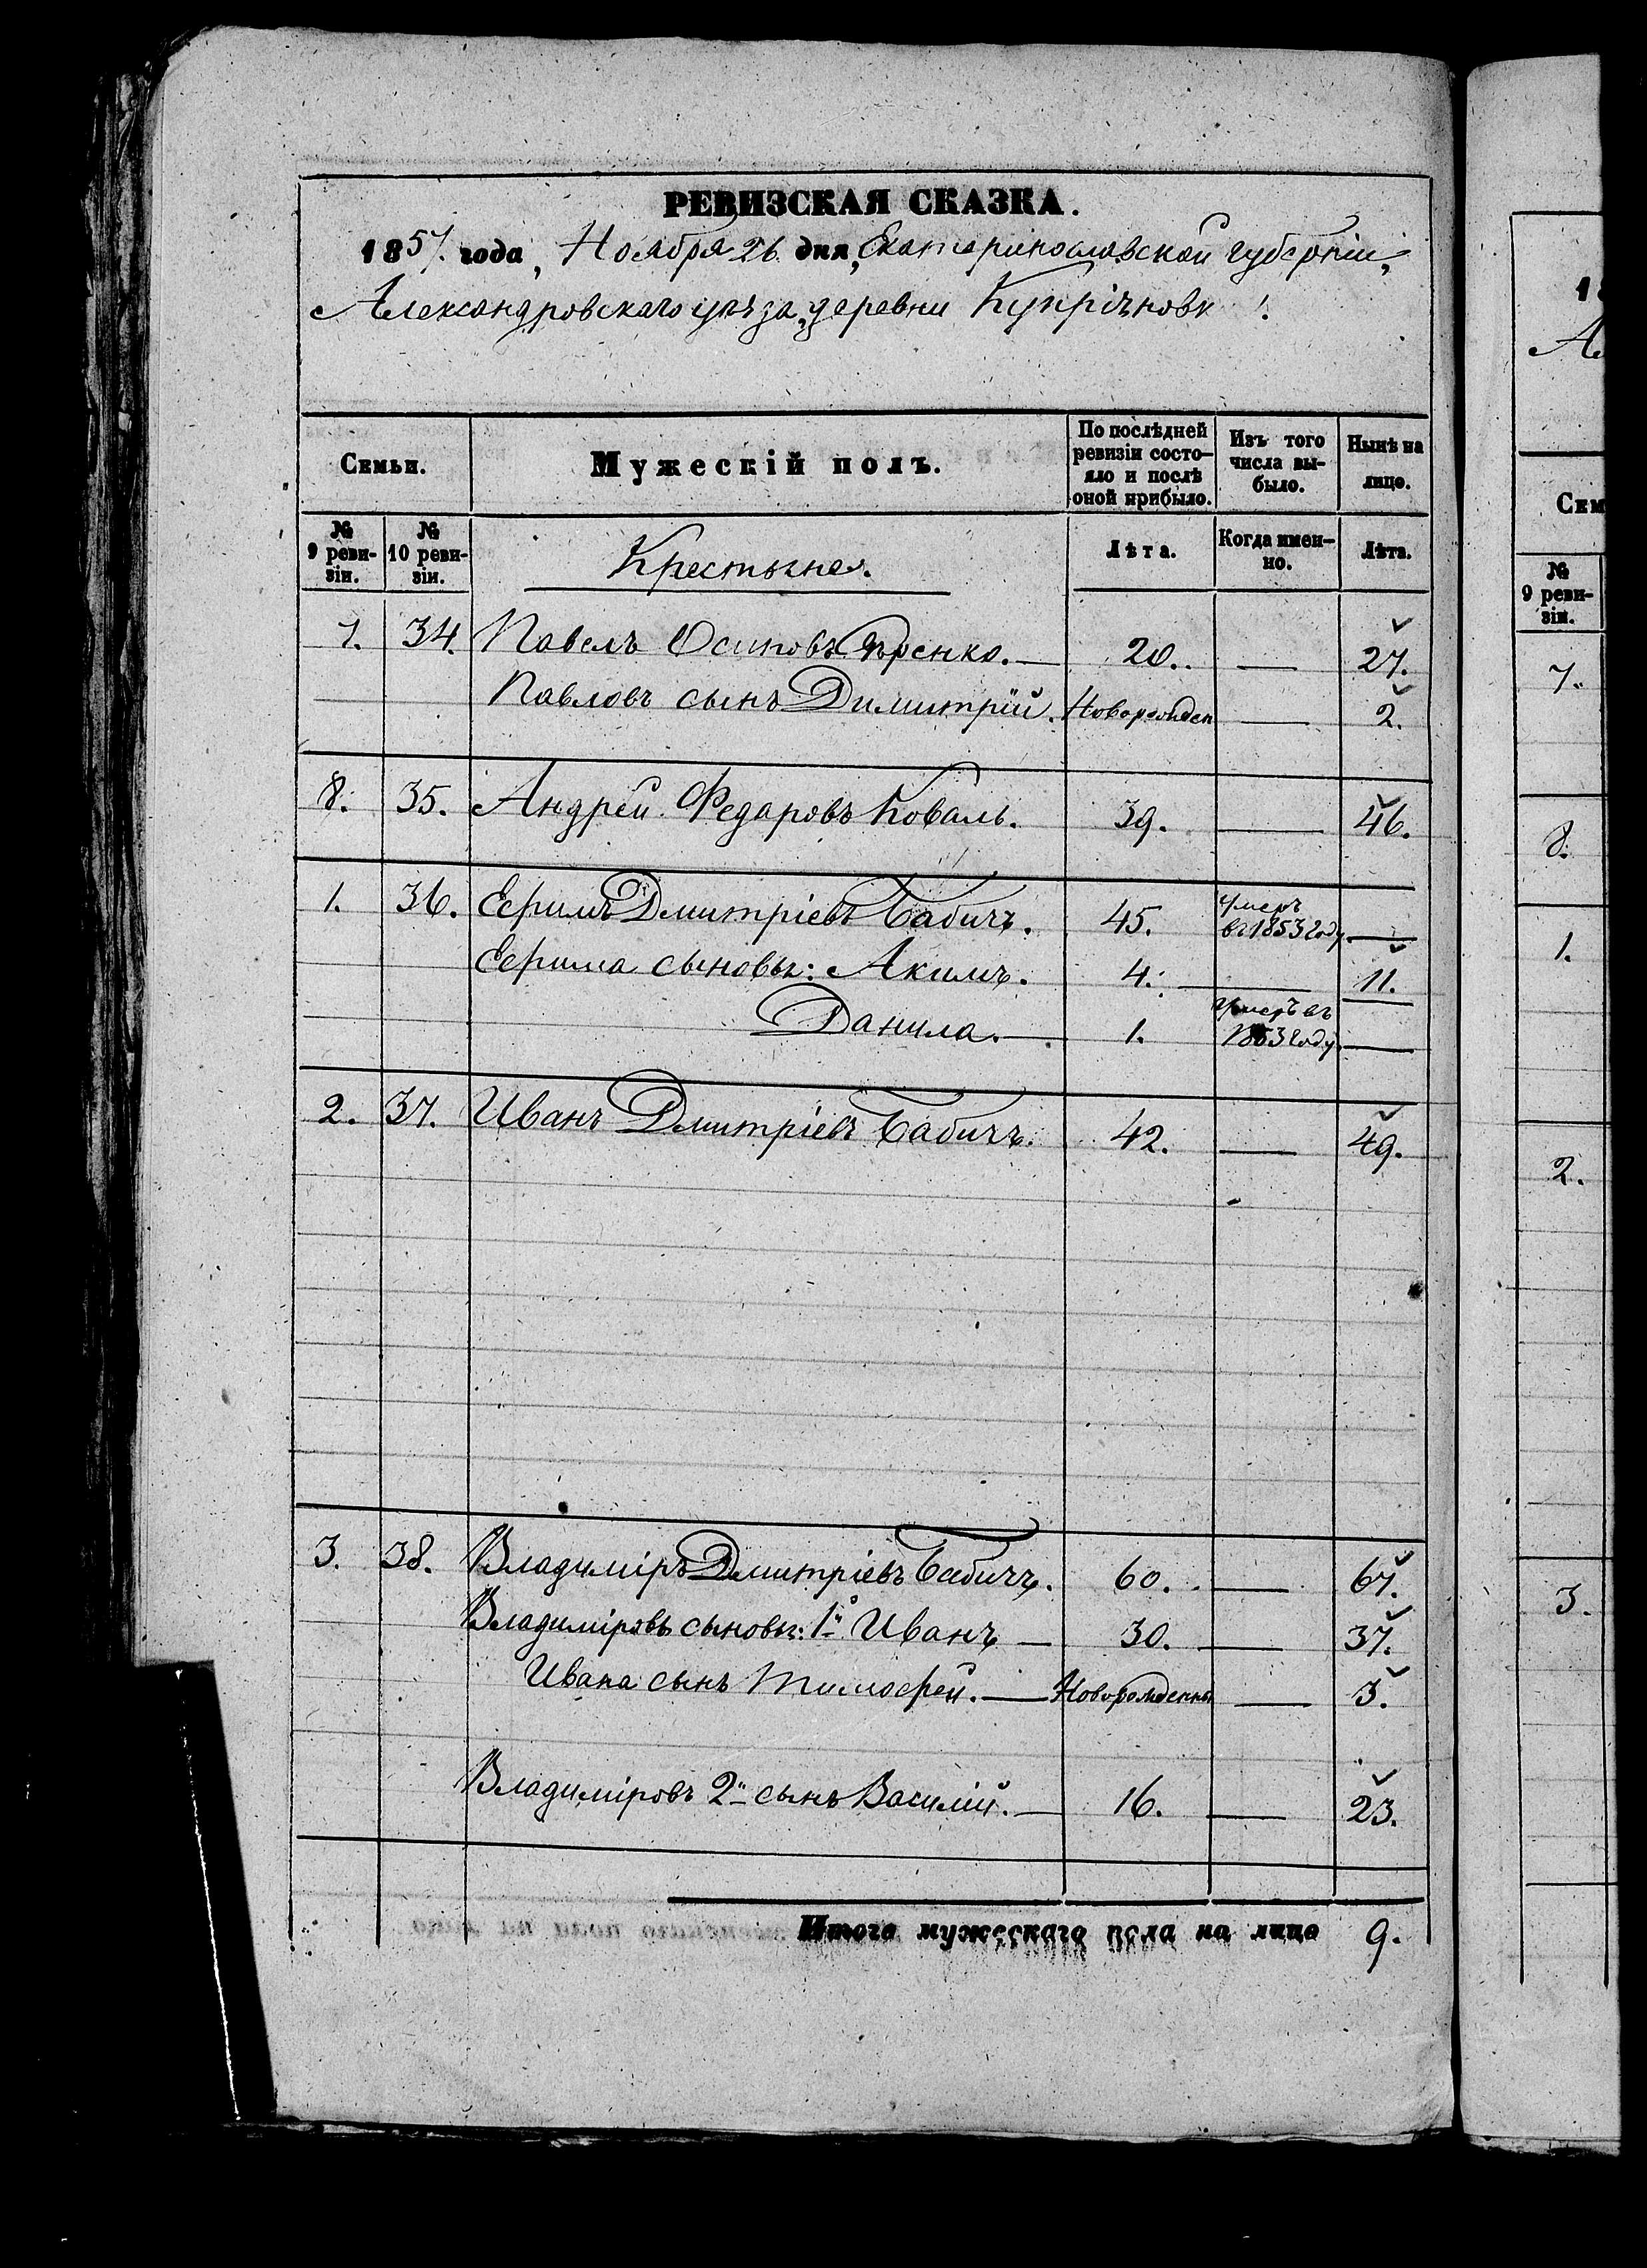 РЕВИЗСКАЯ СКАЗКА.
1857. года, Ноября 26 дня, Екатеринославской губерніи,
Александровскаго уѣзда, деревни Купріѣновк
Семьи.
Мужескій полъ.
По послѣдней ревизіи состо-
яло и послѣ
оной прибыло.
Изъ того
числа вы-
было.
Нынѣ на
лицо.
№
9 реви-
зіи.
№
10 реви-
зіи.
Крестьяне.
Лѣта.
Когда имен-
но.
Лѣта.
7. 34. Павелъ Осиповъ — 20. — 27.
Павловъ сынъ Димитрій. Новорожден — 2.
8. 35. Андрей Федаровъ Коваль. 39. — 46.
1. 36. Ефримъ Дмитріевъ Бабичъ. 45. умеръ
въ 1853 году. —
Ефрима сыновья: Акимъ. 4. — 11.
Данила. — 1. умеръ въ
1853 году. —
2. 37. Иванъ Дмитріевъ Бабичъ. 42. — 49.
3. 38. Владиміръ Дмитріевъ Бабичъ. 60. — 67.
Владиміровъ сыновья: 1й Иванъ — 30. — 37.
Ивана сынъ Тимофей. — Новорожденны — 3.
Владиміровъ 2й сынъ Василій. — 16. — 23.
Итого мужескаго пола на лицо 9.
18
А
Сем
№
9 реви-
зіи.
7.
8.
1.
2.
3.